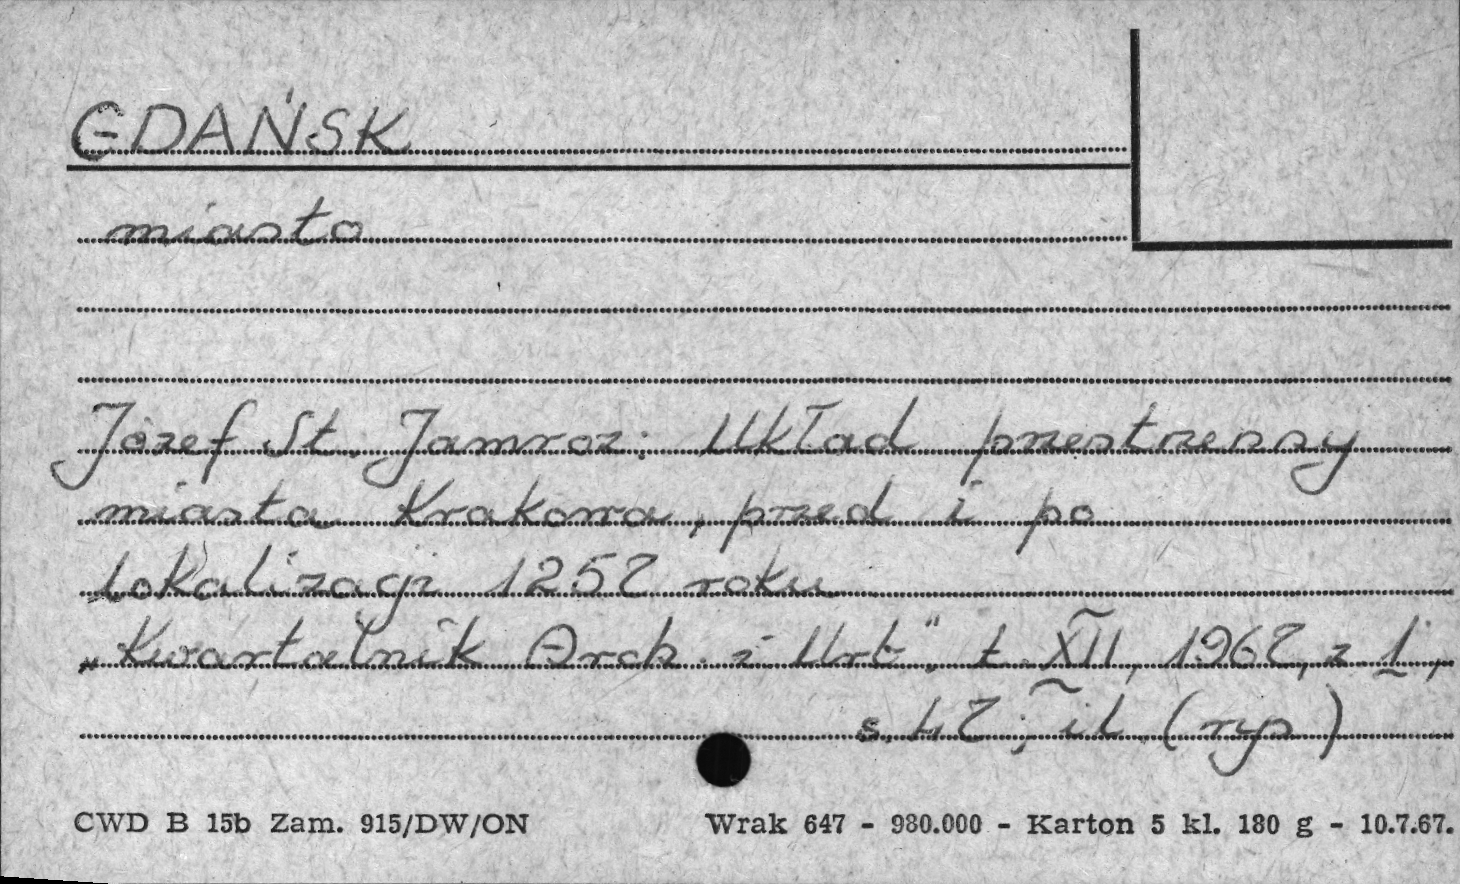 GDAŃSK
miasto
Józef St. Jamroz: Układ przestrzenny
miasta Krakowa, przed i po
lokalizacji 1257 roku
„Kwartalnik Arch. i Urb", t. XII, 1967, z 1,
s. 47; il. (rys)
CWD B 15b Zam. 915/DW/ON Wrak 647 - 980.000 - Karton 5 kl. 180 g - 10.7.67.